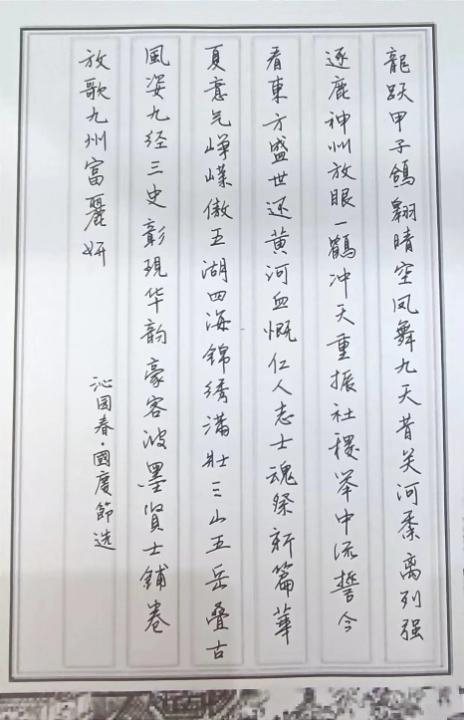 龍跃甲子鴿翱晴空凤舞九天昔关河黍离列强
逐鹿神州放眼一鶴冲天重振社稷举中流誓今
看東方盛世还黄河血慨仁人志士魂祭新篇華
夏意气崢嶸傲五湖四海錦绣满壮三山五岳叠古
風姿九经三史彰现华韵豪客泼墨賢士鋪卷
放歌九州富麗妍
沁园春·國慶節选